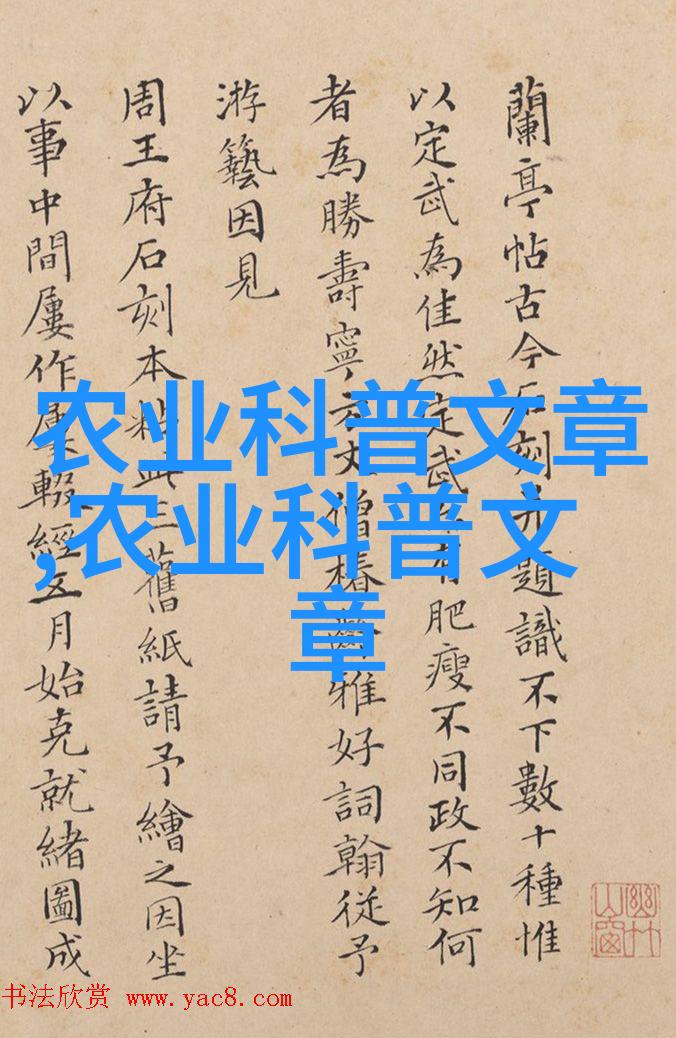 蘭亭帖古今石刻并題識不下數十種惟
以定武為佳然定武本有肥瘦不同政不知何
者為勝壽寧方丈僧椿齡雅好詞翰從予
游藝因見
周王府石刻本粘此三舊紙請予繪之因坐
以事中間屢作屢輟經五月始克就緒圖成
农业科普文章
,农业科普文
章
幽竹山窗
书法欣赏 www.yac8.com